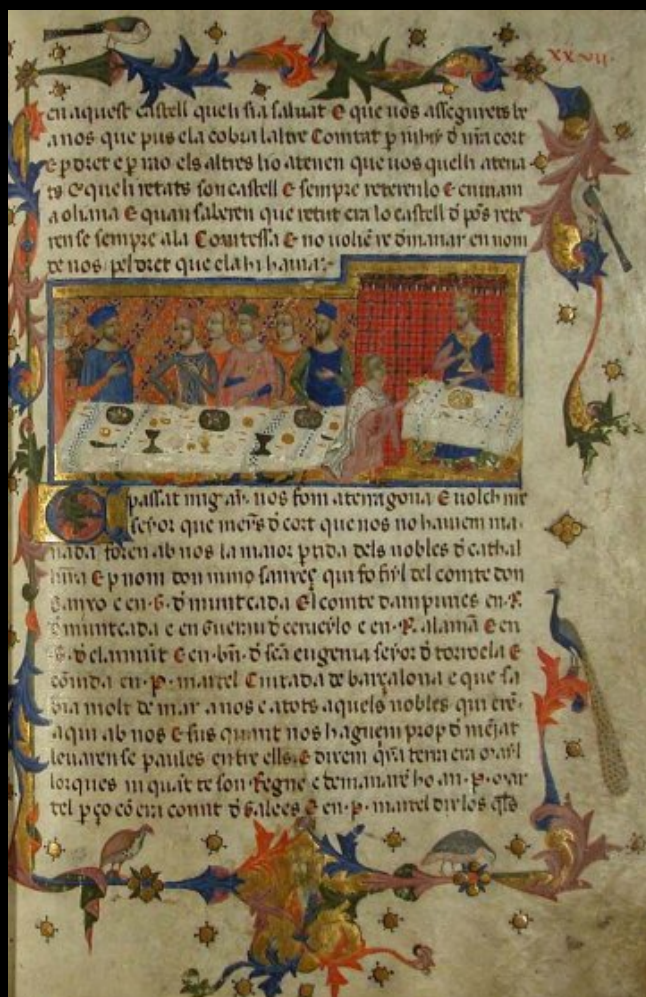 xxvii
en aquest castell que li sia saluat E que uos assegurets be
a nos que pus ela cobra laltre Comtat p d nr̄a cort
E p dret e p rao els altres ho atenen que uos quelli atena
ts E que li retats son castell E sempre reterenlo E en
a oliana E quan saberen que retut era lo castell d pōs rete
ren se sempre ala Comtessa E no uoliē re dmanar en nom
de nos pel dret que ela hi hauia
passat mig añ nos fom a terragona E uolch nr̄e
seyor que meyns d cort que nos no hauiem ma
nada foren ab nos la maior ptida dels nobles d cathal
E p nom don nuno sanxeç qui fo fiyl del comte don
Sanxo e en G d muntcada El comte dampuries en R
d muntcada e en Guerau d cerueylo e en R alamā E en
G d claramūt E en bñ d scā eugenia seyor d torroela E
en P martel Ciutada de barçalona e que sa
bia molt de mar a nos e a tots aquels nobles qui erē
aqui ab nos E sus quant nos haguem prop d mējat
leuaren se paules entre ells E direm qña terra era mayl
lorques ni quāt te son Regne e demanarē ho an P mar
tel p ço cō era comit d galees E en P martel dix los